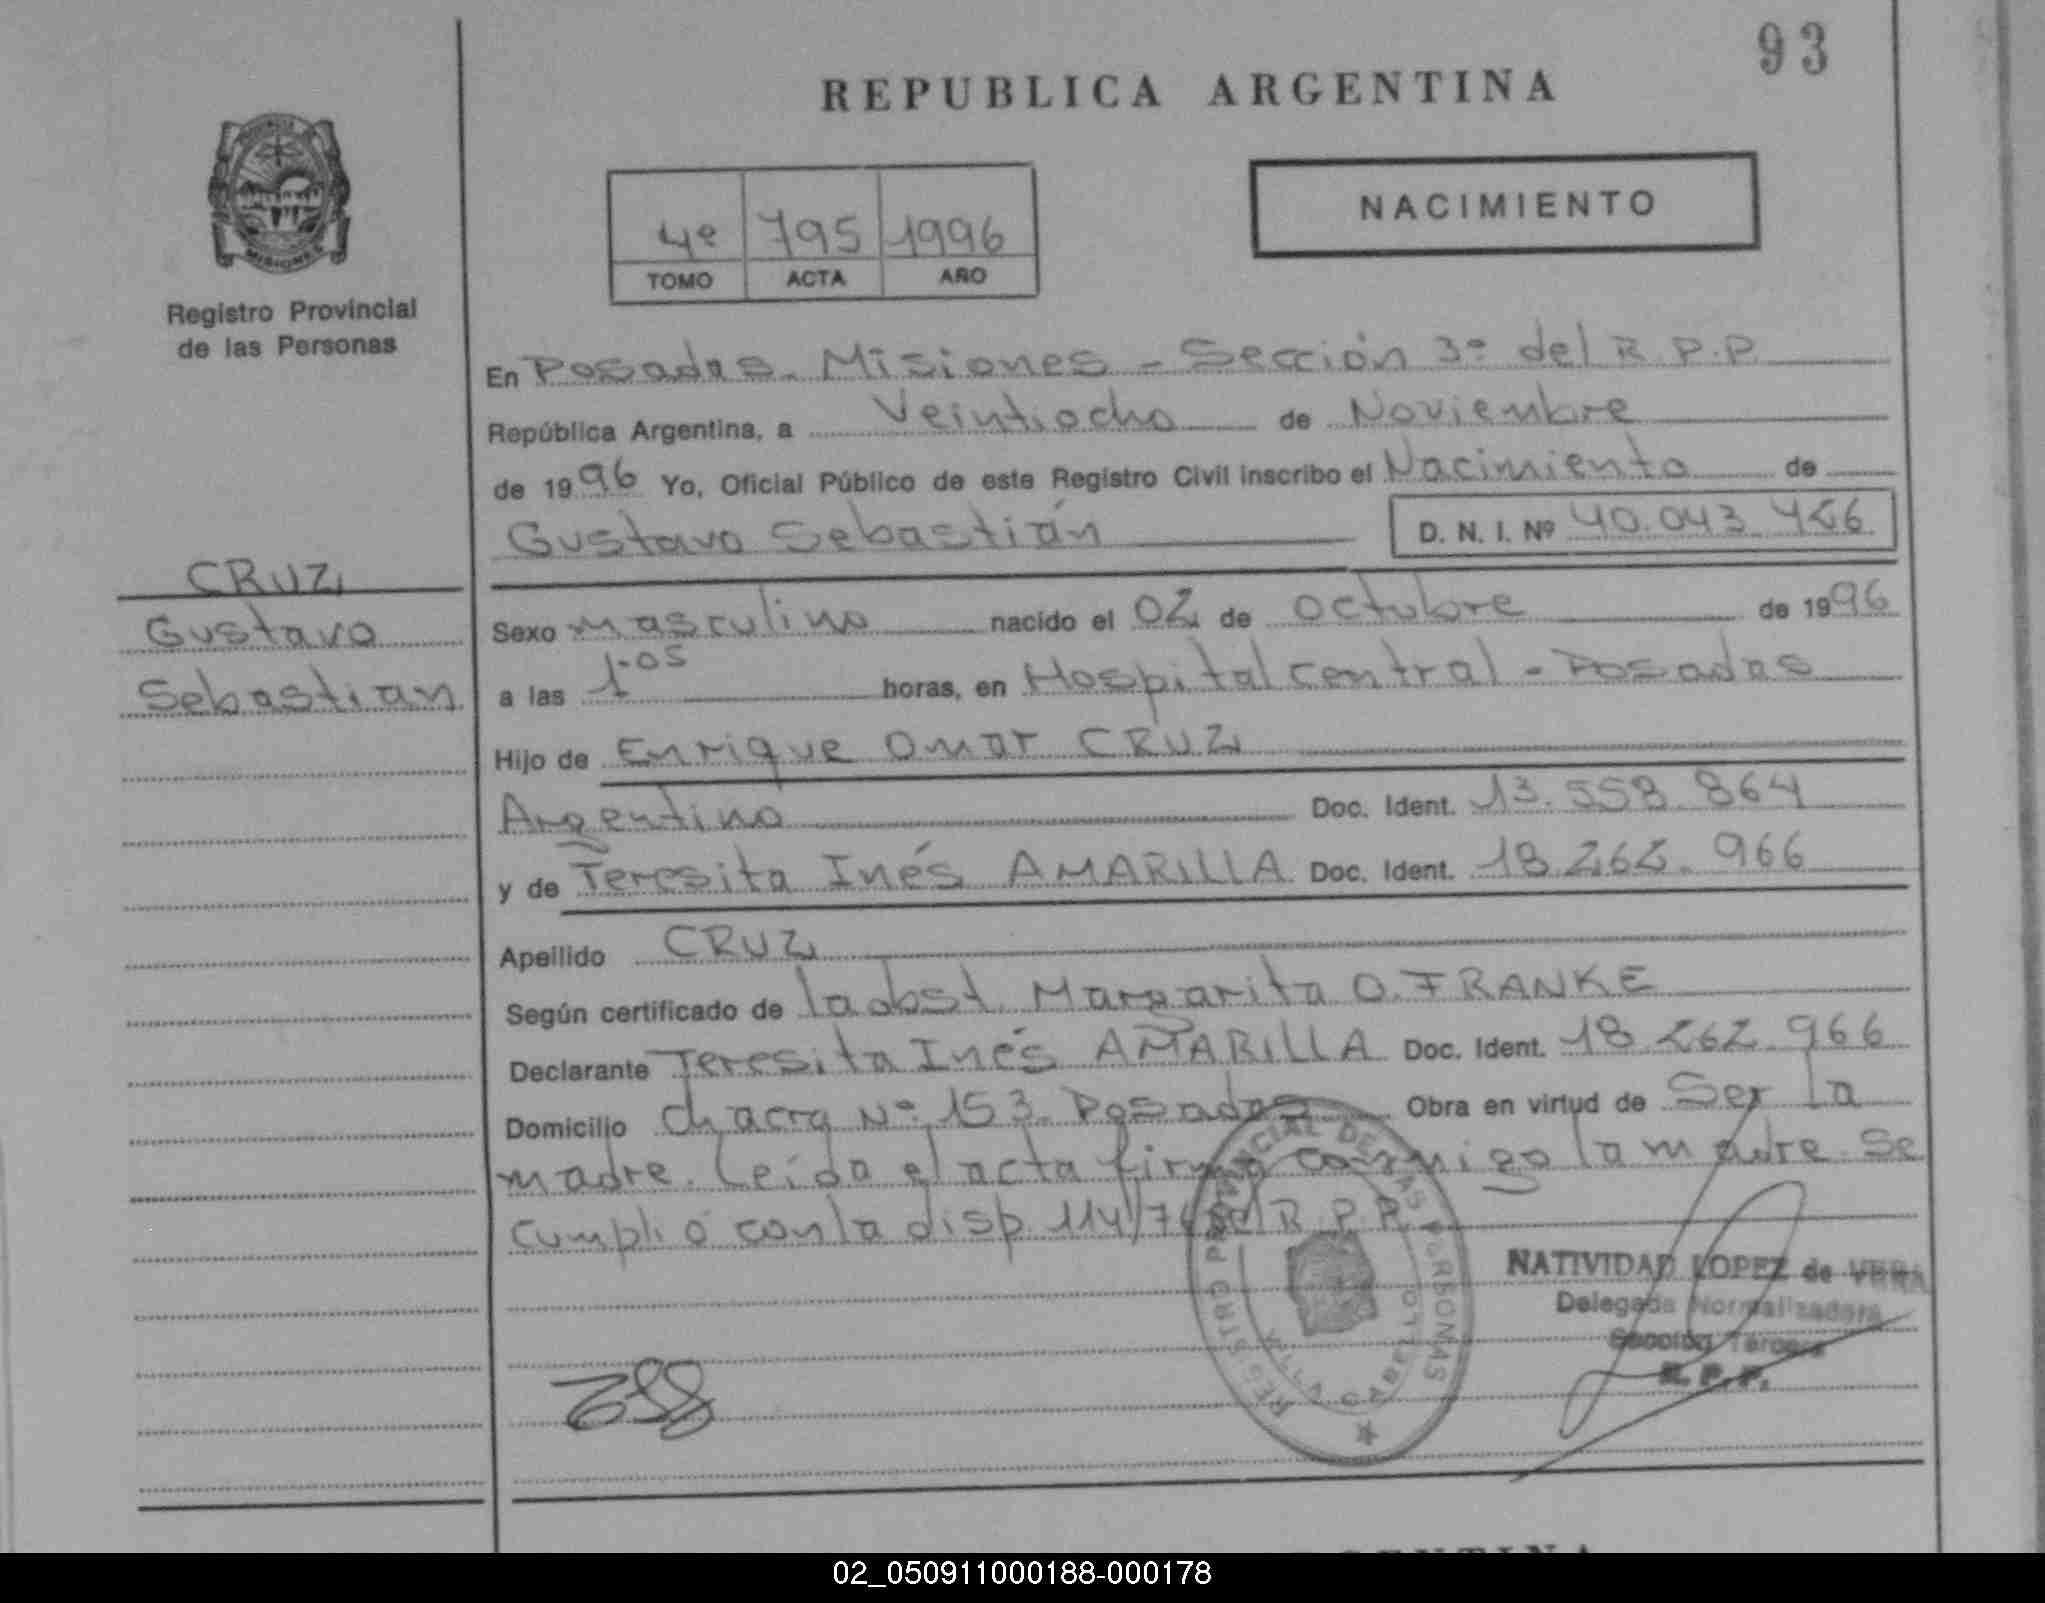 93
REPUBLICA ARGENTINA
NACIMIENTO
4º 795 1996
TOMO ACTA AÑO
MISIONES
Registro Provincial
de las Personas
En Posadas. Misiones - Sección 3º del R.P.P
República Argentina, a Veintiocho de Noviembre
de 1996 Yo, Oficial Público de este Registro Civil inscribo el Nacimiento de
Gustavo Sebastián D. N. I. Nº 40.043
CRUZ
Gustavo
Sebastian
Sexo masculino nacido el 02 de octubre de 1996
a las 1.05 horas, en Hospital central - Posadas
Hijo de Enrique Omar CRUZ
Argentino Doc. Ident. 13.558.864
y de Teresita Inés AMARILLA Doc. Ident. 18.262.966
Apellido CRUZ
Según certificado de la obst Margarita O. FRANKE
Declarante Teresita Inés AMARILLA Doc. Ident. 18.262.966
Domicilio chacra Nº 153. Posadas Obra en virtud de Ser la
madre. Leída el acta firma conmigo la madre. Se
cumplió con la disp. 114/ del R.P.P.
REGISTRO PROVINCIAL DE LAS PERSONAS
NATIVIDAD LOPEZ de VERA
Delegada Normalizadora
Sección Tercera
R. P. P.
02_050911000188-000178